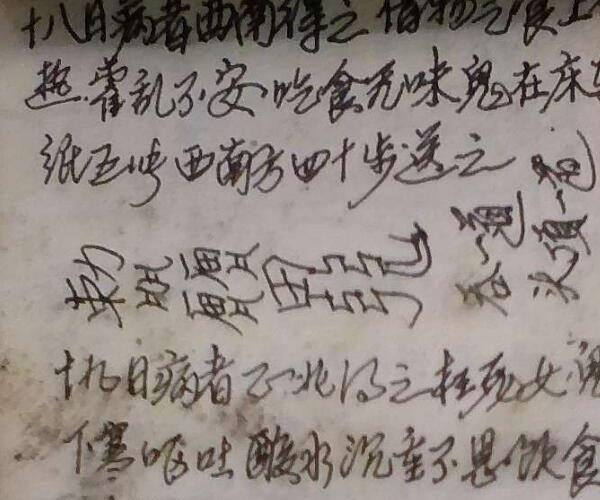 十八日病者西南得之借物之食上
热霍乱不安吃食无味鬼在床
纸五张西南方四十步送之
吞一道
头顶一道
十九日病者正北得之枉死女鬼
下寒呕吐酸水沉重不思饮食